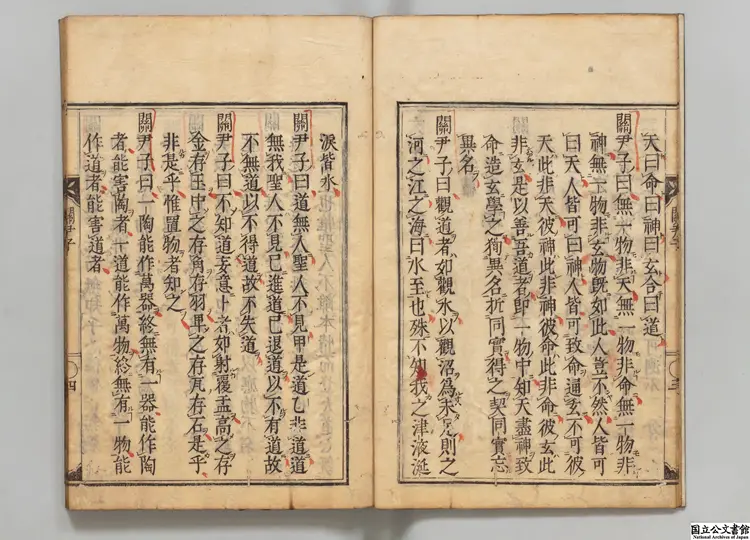 天曰命曰神曰玄合曰道
關尹子曰無一物非天無一物非命無一物非
神無一物非玄物既如此人豈不然人皆可
曰天人皆可曰神人皆可致命通玄不可彼
天此非天彼神此非神彼命此非命彼玄此
非玄是以善吾道者即一物中知天盡神致
命造玄學之徇異名析同實得之契同實忘
異名
關尹子曰觀道者如觀水以觀沼爲未足則之
河之江之海曰水至也殊不知我之津液涎
三
淚皆水
關尹子曰道無人聖人不見甲是道乙非道道
無我聖人不見己進道己退道以不有道故
不無道以不得道故不失道
關尹子曰不知道妄意卜者如射覆盂高之存
金存玉中之存角存羽卑之存瓦存石是乎
非是乎惟置物者知之
關尹子曰一陶能作萬器終無有一器能作陶
者能害陶者一道能作萬物終無有一物能
作道者能害道者
關尹子
四
国立公文書館
National Archives of Japan